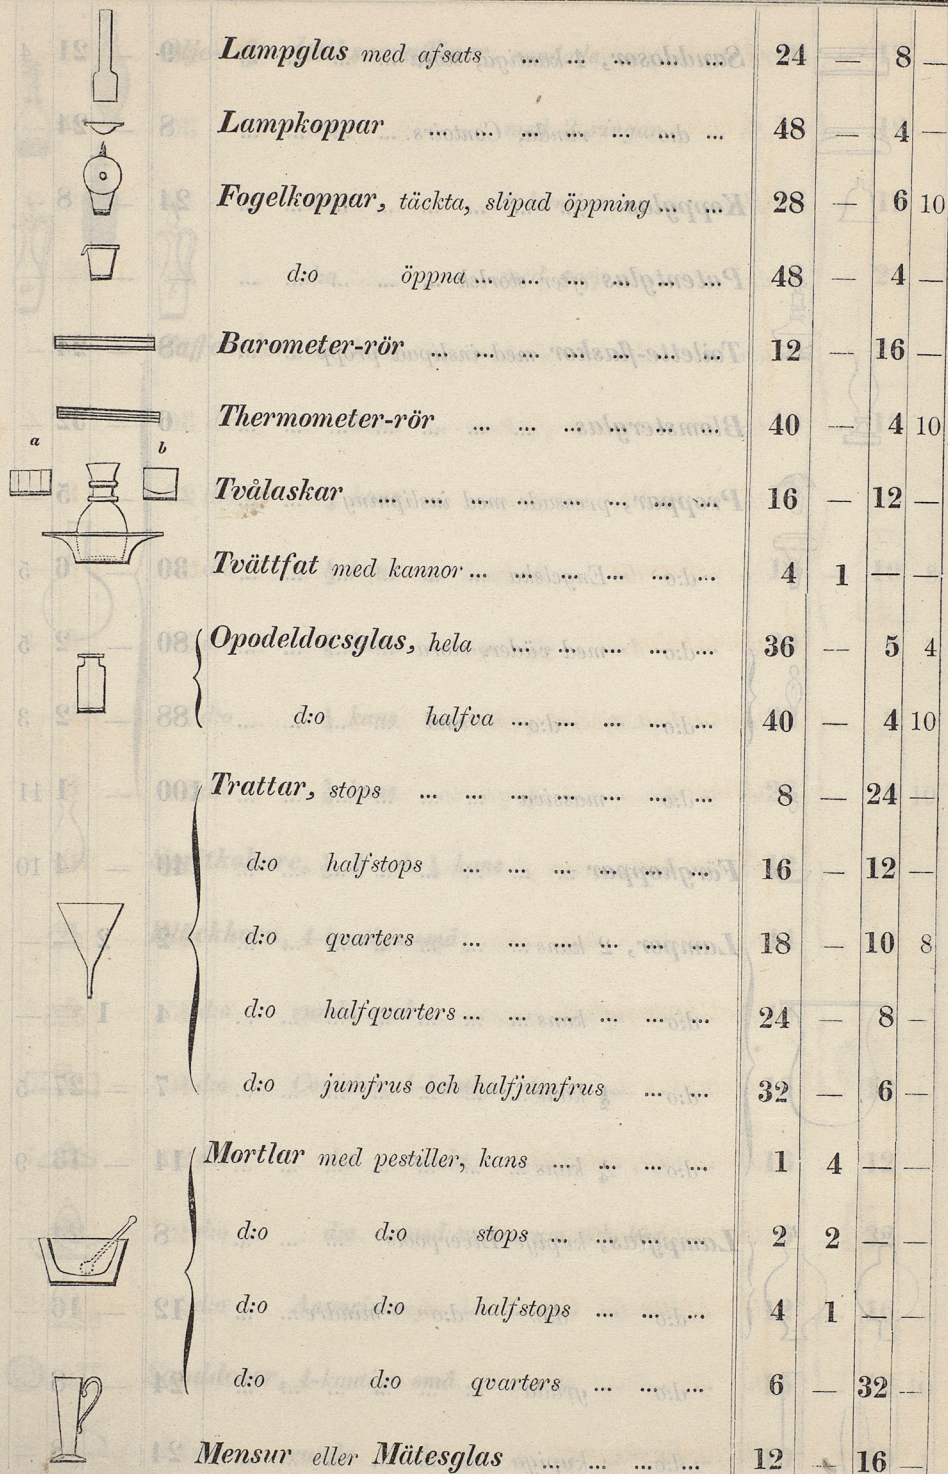 Lampglas med afsats ... ... ... ... ... 24 — 8 —
Lampkoppar ... ... ... ... ... ... ... 48 — 4 —
Fogelkoppar, täckta, slipad öppning ... ... 28 — 6 10
d:o öppna ... ... ... ... ... ... 48 — 4 —
Barometer-rör ... ... ... ... ... ... ... 12 — 16 —
Thermometer-rör ... ... ... ... ... ... 40 — 4 10
a b
Tvålaskar ... ... ... ... ... ... ... ... 16 — 12 —
Tvättfat med kannor ... ... ... ... ... ... 4 1 — —
Opodeldocsglas, hela ... ... ... ... ... 36 — 5 4
d:o halfva ... ... ... ... ... 40 — 4 10
Trattar, stops ... ... ... ... ... ... ... 8 — 24 —
d:o halfstops ... ... ... ... ... ... 16 — 12 —
d:o qvarters ... ... ... ... ... ... 18 — 10 8
d:o halfqvarters ... ... ... ... ... ... 24 — 8 —
d:o jumfrus och halfjumfrus ... ... 32 — 6 —
Mortlar med pestiller, kans ... ... ... ... 1 4 — —
d:o d:o stops ... ... ... ... 2 2 — —
d:o d:o halfstops ... ... ... 4 1 — —
d:o d:o qvarters ... ... ... 6 — 32 —
Mensur eller Mätesglas ... ... ... ... 12 — 16 —